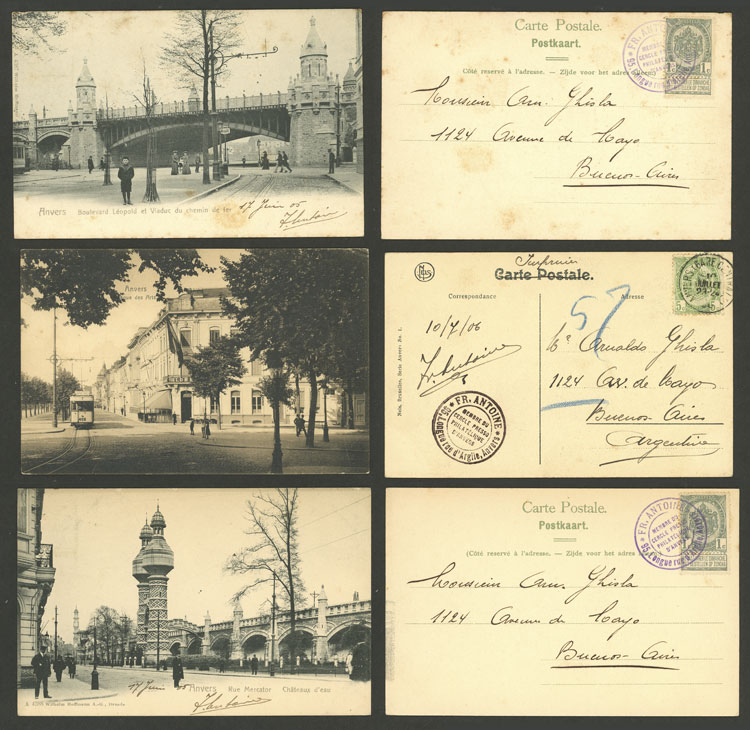 Anvers Boulevard Léopold et Viaduc du chemin de fer
17 Juin 06
Fr. Antoine
Carte Postale.
Postkaart.
Côté reservé à l'adresse. – Zijde voor het adres
FR. ANTOINE
MEMBRE DU
CERCLE PRESSO
PHILATELIQUE
D'ANVERS
Monsieur Arn. Ghisla
1124 Avenue de Mayo
Buenos-Aires
Anvers
des Arts
Imprimé
Carte Postale.
Correspondance
Adresse
57
10/7/06
Fr. Antoine
FR. ANTOINE
MEMBRE DU
CERCLE PRESSO
PHILATELIQUE
D'ANVERS
95, Longue rue d'Argile, Anvers
Nels, Bruxelles, Serie Anvers No. 1.
Arnoldo Ghisla
1124 Av. de Mayo
Buenos Aires
Argentine
17 Juin 06
Anvers Rue Mercator Châteaux d'eau
Fr. Antoine
Carte Postale.
Postkaart.
(Côté reservé à l'adresse. – Zijde voor het adres
FR. ANTOINE
MEMBRE DU
CERCLE PRESSO
PHILATELIQUE
D'ANVERS
Monsieur Arn. Ghisla
1124 Avenue de Mayo
Buenos-Aires